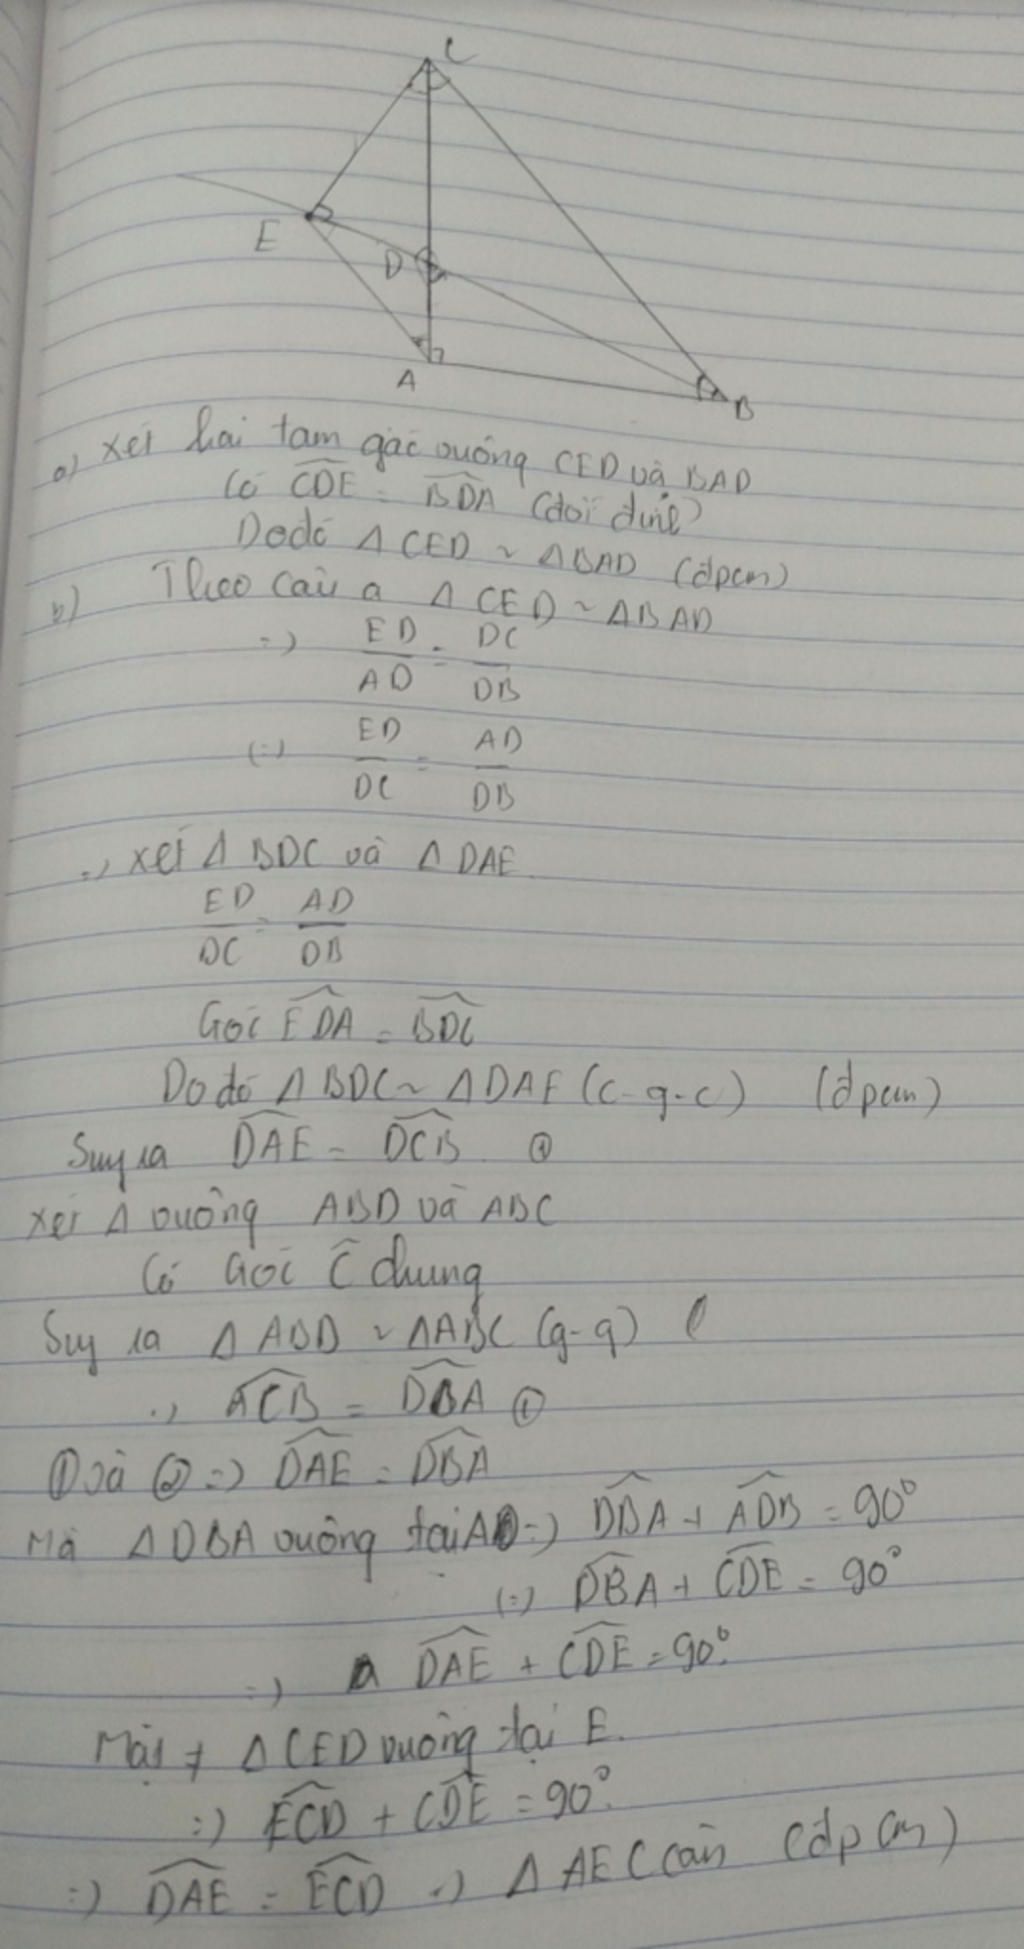 C
E
D
A
B
a) xét hai tam giác vuông CED và BAD
Có CDE = BDA (đối đỉnh)
Do đó Δ CED ~ ΔBAD (đpcm)
b) Theo câu a Δ CED ~ ΔBAD
=) ED/AD = DC/DB
(=) ED/DC = AD/DB
=) xét Δ BDC và Δ DAE
ED/DC = AD/DB
Góc EDA = BDC
Do đó Δ BDC ~ Δ DAE (c-g-c) (đpcm)
Suy ra DAE = DCB ①
xét Δ vuông ABD và ABC
Có Góc C chung
Suy ra Δ ABD ~ ΔABC (g-g)
=) ACB = DBA ①
① và ② =) DAE = DBA
Mà Δ DBA vuông tại A =) DBA + ADB = 90°
(=) DBA + CDE = 90°
=) DAE + CDE = 90°.
Mặt ≠ Δ CED vuông tại E.
=) ECD + CDE = 90°.
=) DAE = ECD =) Δ AEC cân (đpcm)